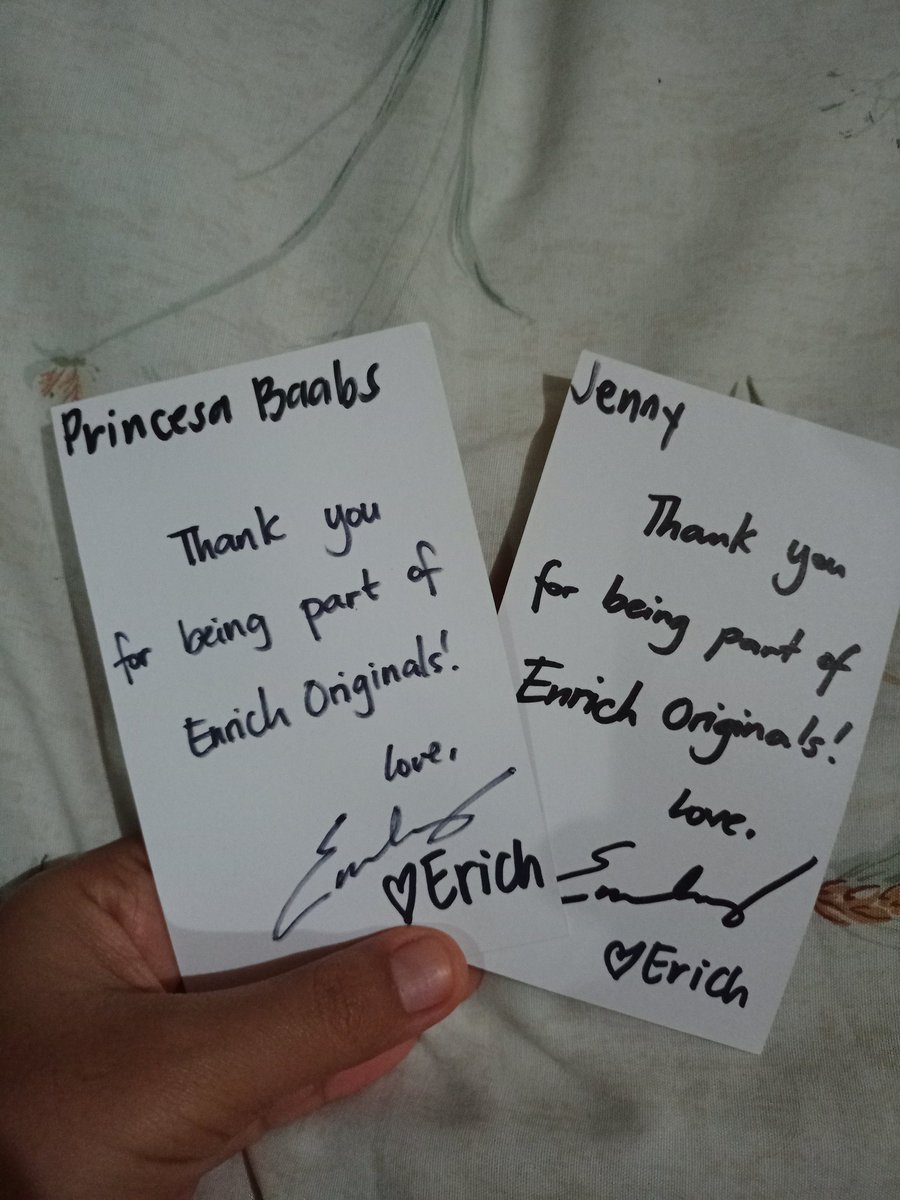 Princesa Baabs
Thank you
for being part of
Enrich Originals!
love,
♡Erich
Jenny
Thank you
for being part of
Enrich Originals!
love,
♡Erich